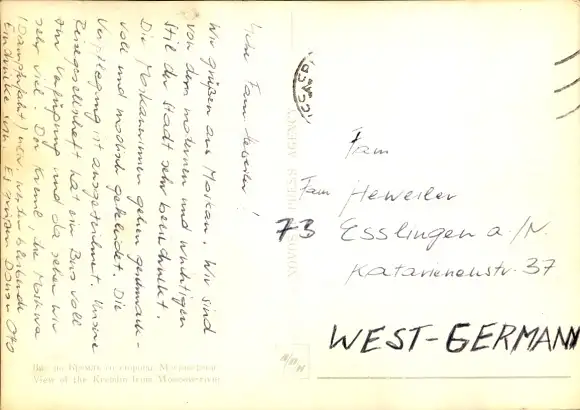 Liebe Fam. Heweiler!
Wir grüßen aus Moskau. Wir sind
von dem modernen und wuchtigen
Stil der Stadt sehr beeindruckt.
Die Moskauerinnen gehen geschmack-
voll und modisch gekleidet. Die
Verpflegung ist ausgezeichnet. Unsere
Reisegesellschaft hat ein Bus voll
zur Verfügung und da sehen wir
sehr viel. Der Kreml, die Moskwa
(Dampferfahrt) bleibende
Eindrücke Es grüßen
Fam
Fam Heweiler
73 Esslingen a./N.
Katarienenstr. 37
WEST-GERMANY
Вид на Кремль со стороны Москворечья
View of the Kremlin from Moskvorechye